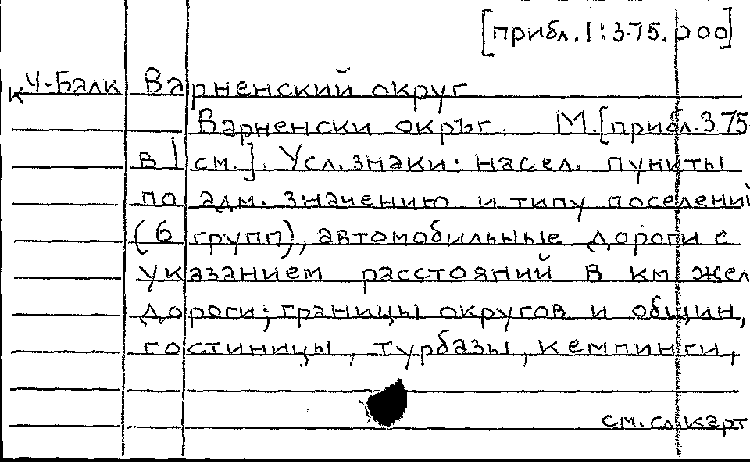 [прибл. 1:375.000]
К У-Балк Варненский округ
Варненски окръг. М.[прибл.375
в 1 см.]. Усл. знаки: насел. пункты
по адм. значению и типу поселений
(6 групп), автомобильные дороги с
указанием расстояний в км жел
дороги; границы округов и общин,
гостиницы, турбазы, кемпинги,
см. сл. карт